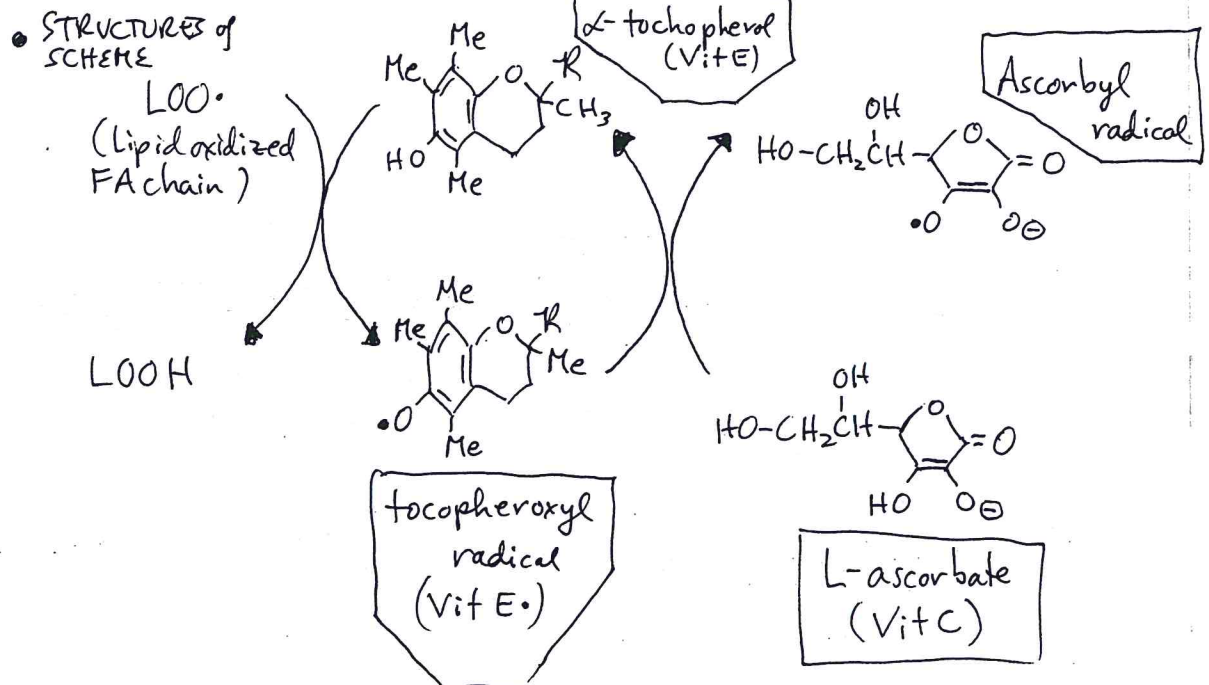 • STRUCTURES of
SCHEME
LOO•
(Lipid oxidized
FA chain)
LOOH
Me
Me
O
R
CH₃
HO
Me
α-tochopherol
(Vit E)
Me
Me
O
R
Me
•O
Me
tocopheroxyl
radical
(Vit E•)
Ascorbyl
radical
OH
HO-CH₂CH
O
=O
•O
O⊖
OH
HO-CH₂CH
O
=O
HO
O⊖
L-ascorbate
(Vit C)